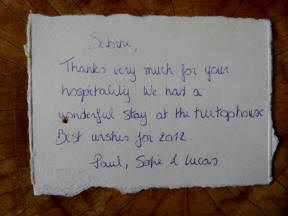 Sabine,
Thanks very much for your
hospitality. We had a
wonderful stay at the treetophouse
Best wishes for 2012.
Paul, Sofie & Lucas